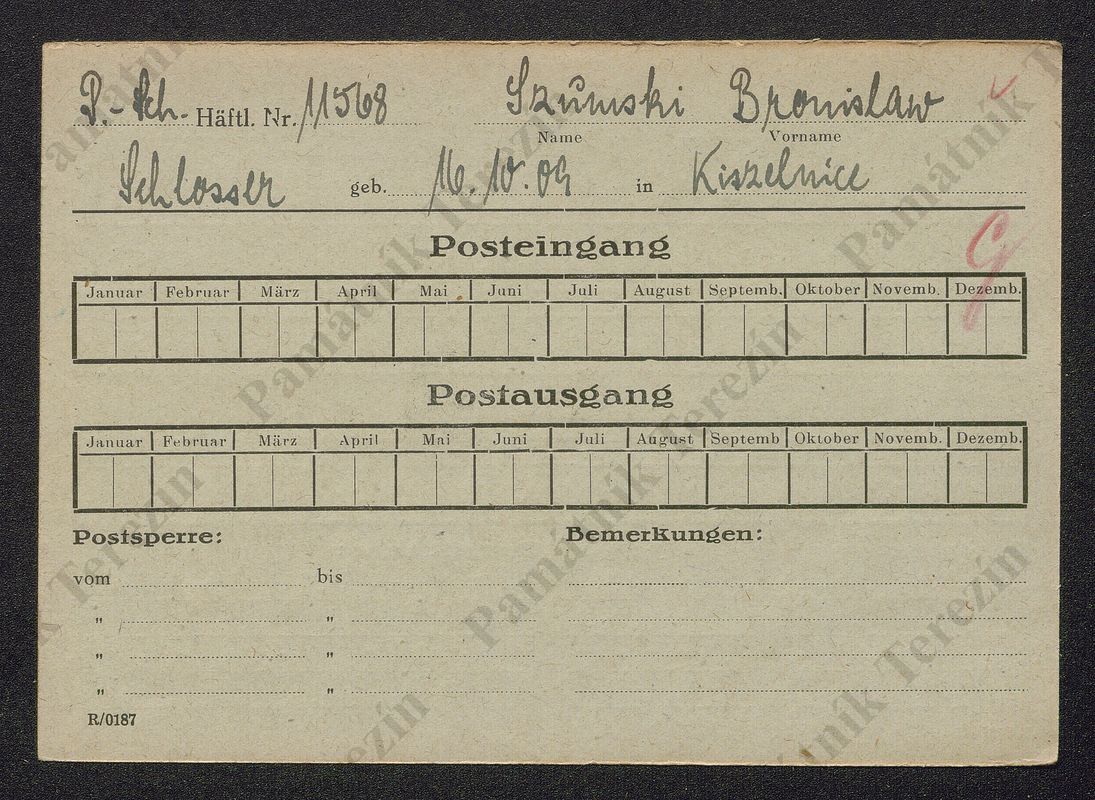 P.- Sch. Häftl. Nr. 11568 Szumski Bronislaw
Name Vorname
Schlosser geb. 16. 10. 09 in Kiszelnice
Posteingang
Januar Februar März April Mai Juni Juli August Septemb. Oktober Novemb. Dezemb.
Postausgang
Januar Februar März April Mai Juni Juli August Septemb Oktober Novemb. Dezemb.
Postsperre: Bemerkungen:
vom bis
" "
" "
" "
R/0187
Památník Terezín